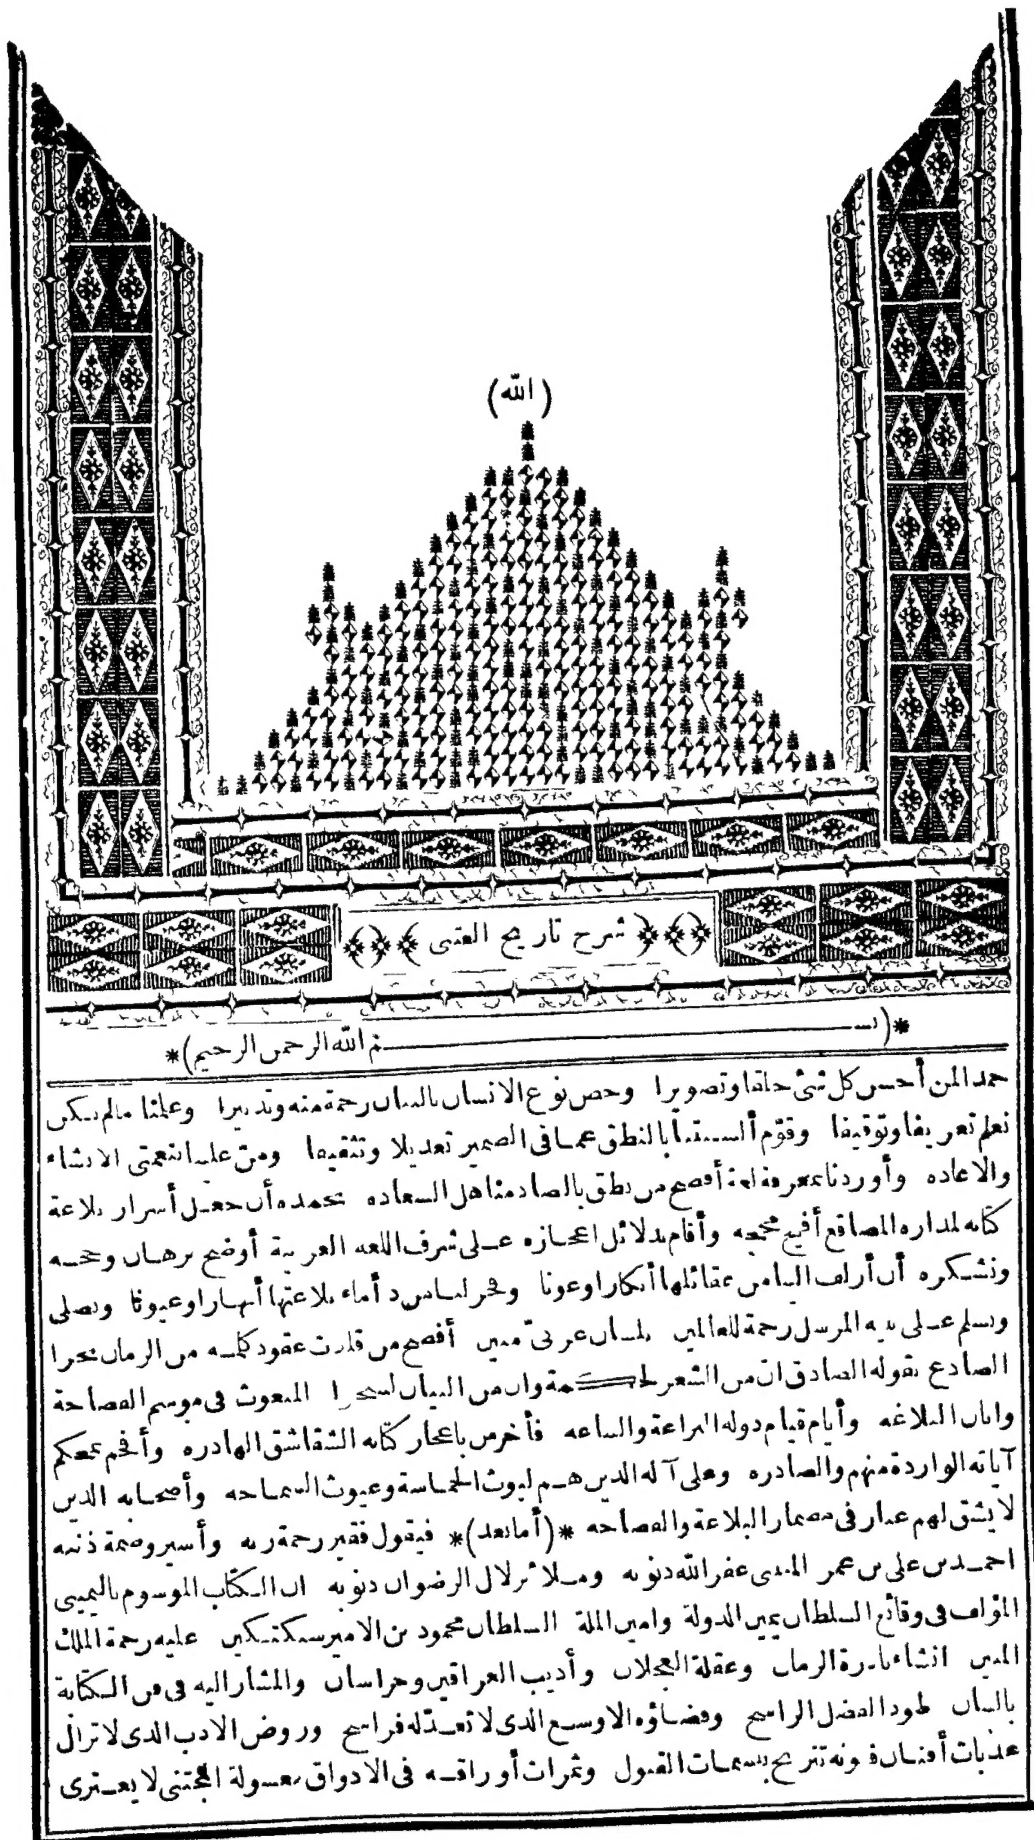 (الله)
شرح تاريخ العتبى
*(بسم الله الرحمن الرحيم)*
حمدا لمن أحسن كل شئ خلقا وتصويرا وخص نوع الانسان بالبيان رحمة منه وتدبيرا وعلمنا مالم نكن
نعلم تعريفا وتوقيفا وقوّم ألسنتنا بالنطق عما فى الضمير تعديلا وتثقيفا ومنّ علينا بنعمتى الانشاء
والاعاده وأوردنا بمعرفة لغة أفصح من نطق بالضاد مناهل السعاده نحمده أن جعل أسرار بلاغة
كتابه لمداره المصاقع أفيح محجه وأقام بدلائل اعجازه على شرف اللغه العربية أوضح برهان وحجه
ونشكره أن أزلف الينا من عقائلها أبكارا وعونا وفجر لنا من دأماء بلاغتها أنهارا وعيونا ونصلى
ونسلم على نبيه المرسل رحمة للعالمين بلسان عربىّ مبين أفصح من قلدت عقود كلمه من الزمان نحرا
الصادع بقوله الصادق ان من الشعر لحكمة وان من البيان لسحرا المبعوث فى موسم الفصاحة
وابان البلاغه وأيام قيام دولة البراعة والبياعه فأخرس باعجاز كتابه الشقاشق الهادره وأفحم بمحكم
آياته الواردة منهم والصادره وعلى آله الذين هم ليوث الحماسة وغيوث السماحه وأصحابه الذين
لا يشق لهم غبار فى مضمار البلاغة والفصاحه *(أما بعد)* فيقول فقير رحمة ربه وأسير وصمة ذنبه
احمد بن على بن عمر المنينى غفر الله ذنوبه وملا ً بزلال الرضوان ذنوبه ان الكتاب الموسوم باليمينى
المؤلف فى وقائع السلطان يمين الدولة وامين الملة السلطان محمود بن الامير سبكتكين عليه رحمة الملك
المبين انشاء نادرة الزمان وعقلة العجلان وأديب العراقين وخراسان والمشار اليه فى فن الكتابة
بالبنان طود الفضل الراسخ وفضاؤه الاوسع الذى لا تعدّله فراسخ وروض الادب الذى لا تزال
عذبات أفنان فنونه تترنح بنسمات القبول وثمرات أوراقه فى الاذواق معسولة المجتنى لا يعترى